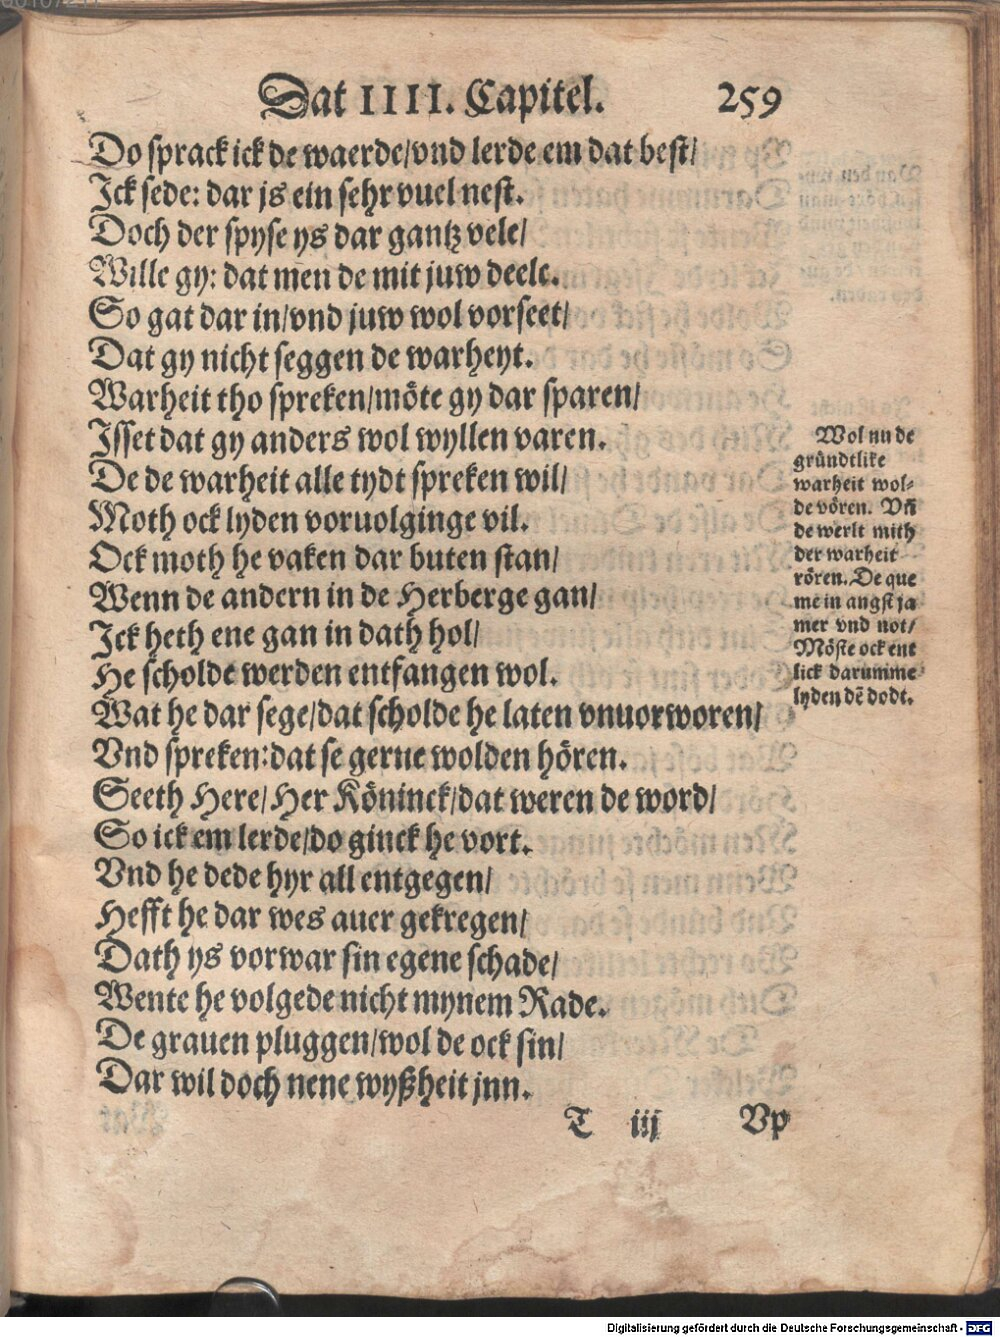 Dat IIII. Capitel. 259
Do sprack ick de waerde/vnd lerde em dat best/
Jck sede: dar js ein sehr vuel nest.
Doch der spyse ys dar gantz vele/
Wille gy: dat men de mit juw deele.
So gat dar in/vnd juw wol vorseet/
Dat gy nicht seggen de warheyt.
Warheit tho spreken/möte gy dar sparen/
Jsset dat gy anders wol wyllen varen.
De de warheit alle tydt spreken wil/
Moth ock lyden voruolginge vil.
Ock moth he vaken dar buten stan/
Wenn de andern in de Herberge gan/
Jck heth ene gan in dath hol/
He scholde werden entfangen wol.
Wat he dar sege/dat scholde he laten vnuorworen/
Vnd spreken:dat se gerne wolden hören.
Seeth Here/Her Köninck/dat weren de word/
So ick em lerde/do ginck he vort.
Vnd he dede hyr all entgegen/
Hefft he dar wes auer gekregen/
Dath ys vorwar sin egene schade/
Wente he volgede nicht mynem Rade.
De grauen pluggen/wol de ock sin/
Dar wil doch nene wyßheit jnn.
T iij Vp
Wol nu de
gründtlike
warheit wol-
de vören. Vñ
de werlt mith
der warheit
rören. De que
me in angst ja
mer vnd not/
Möste ock ent
lick darumme
lyden dē dodt.
Digitalisierung gefördert durch die Deutsche Forschungsgemeinschaft - DFG